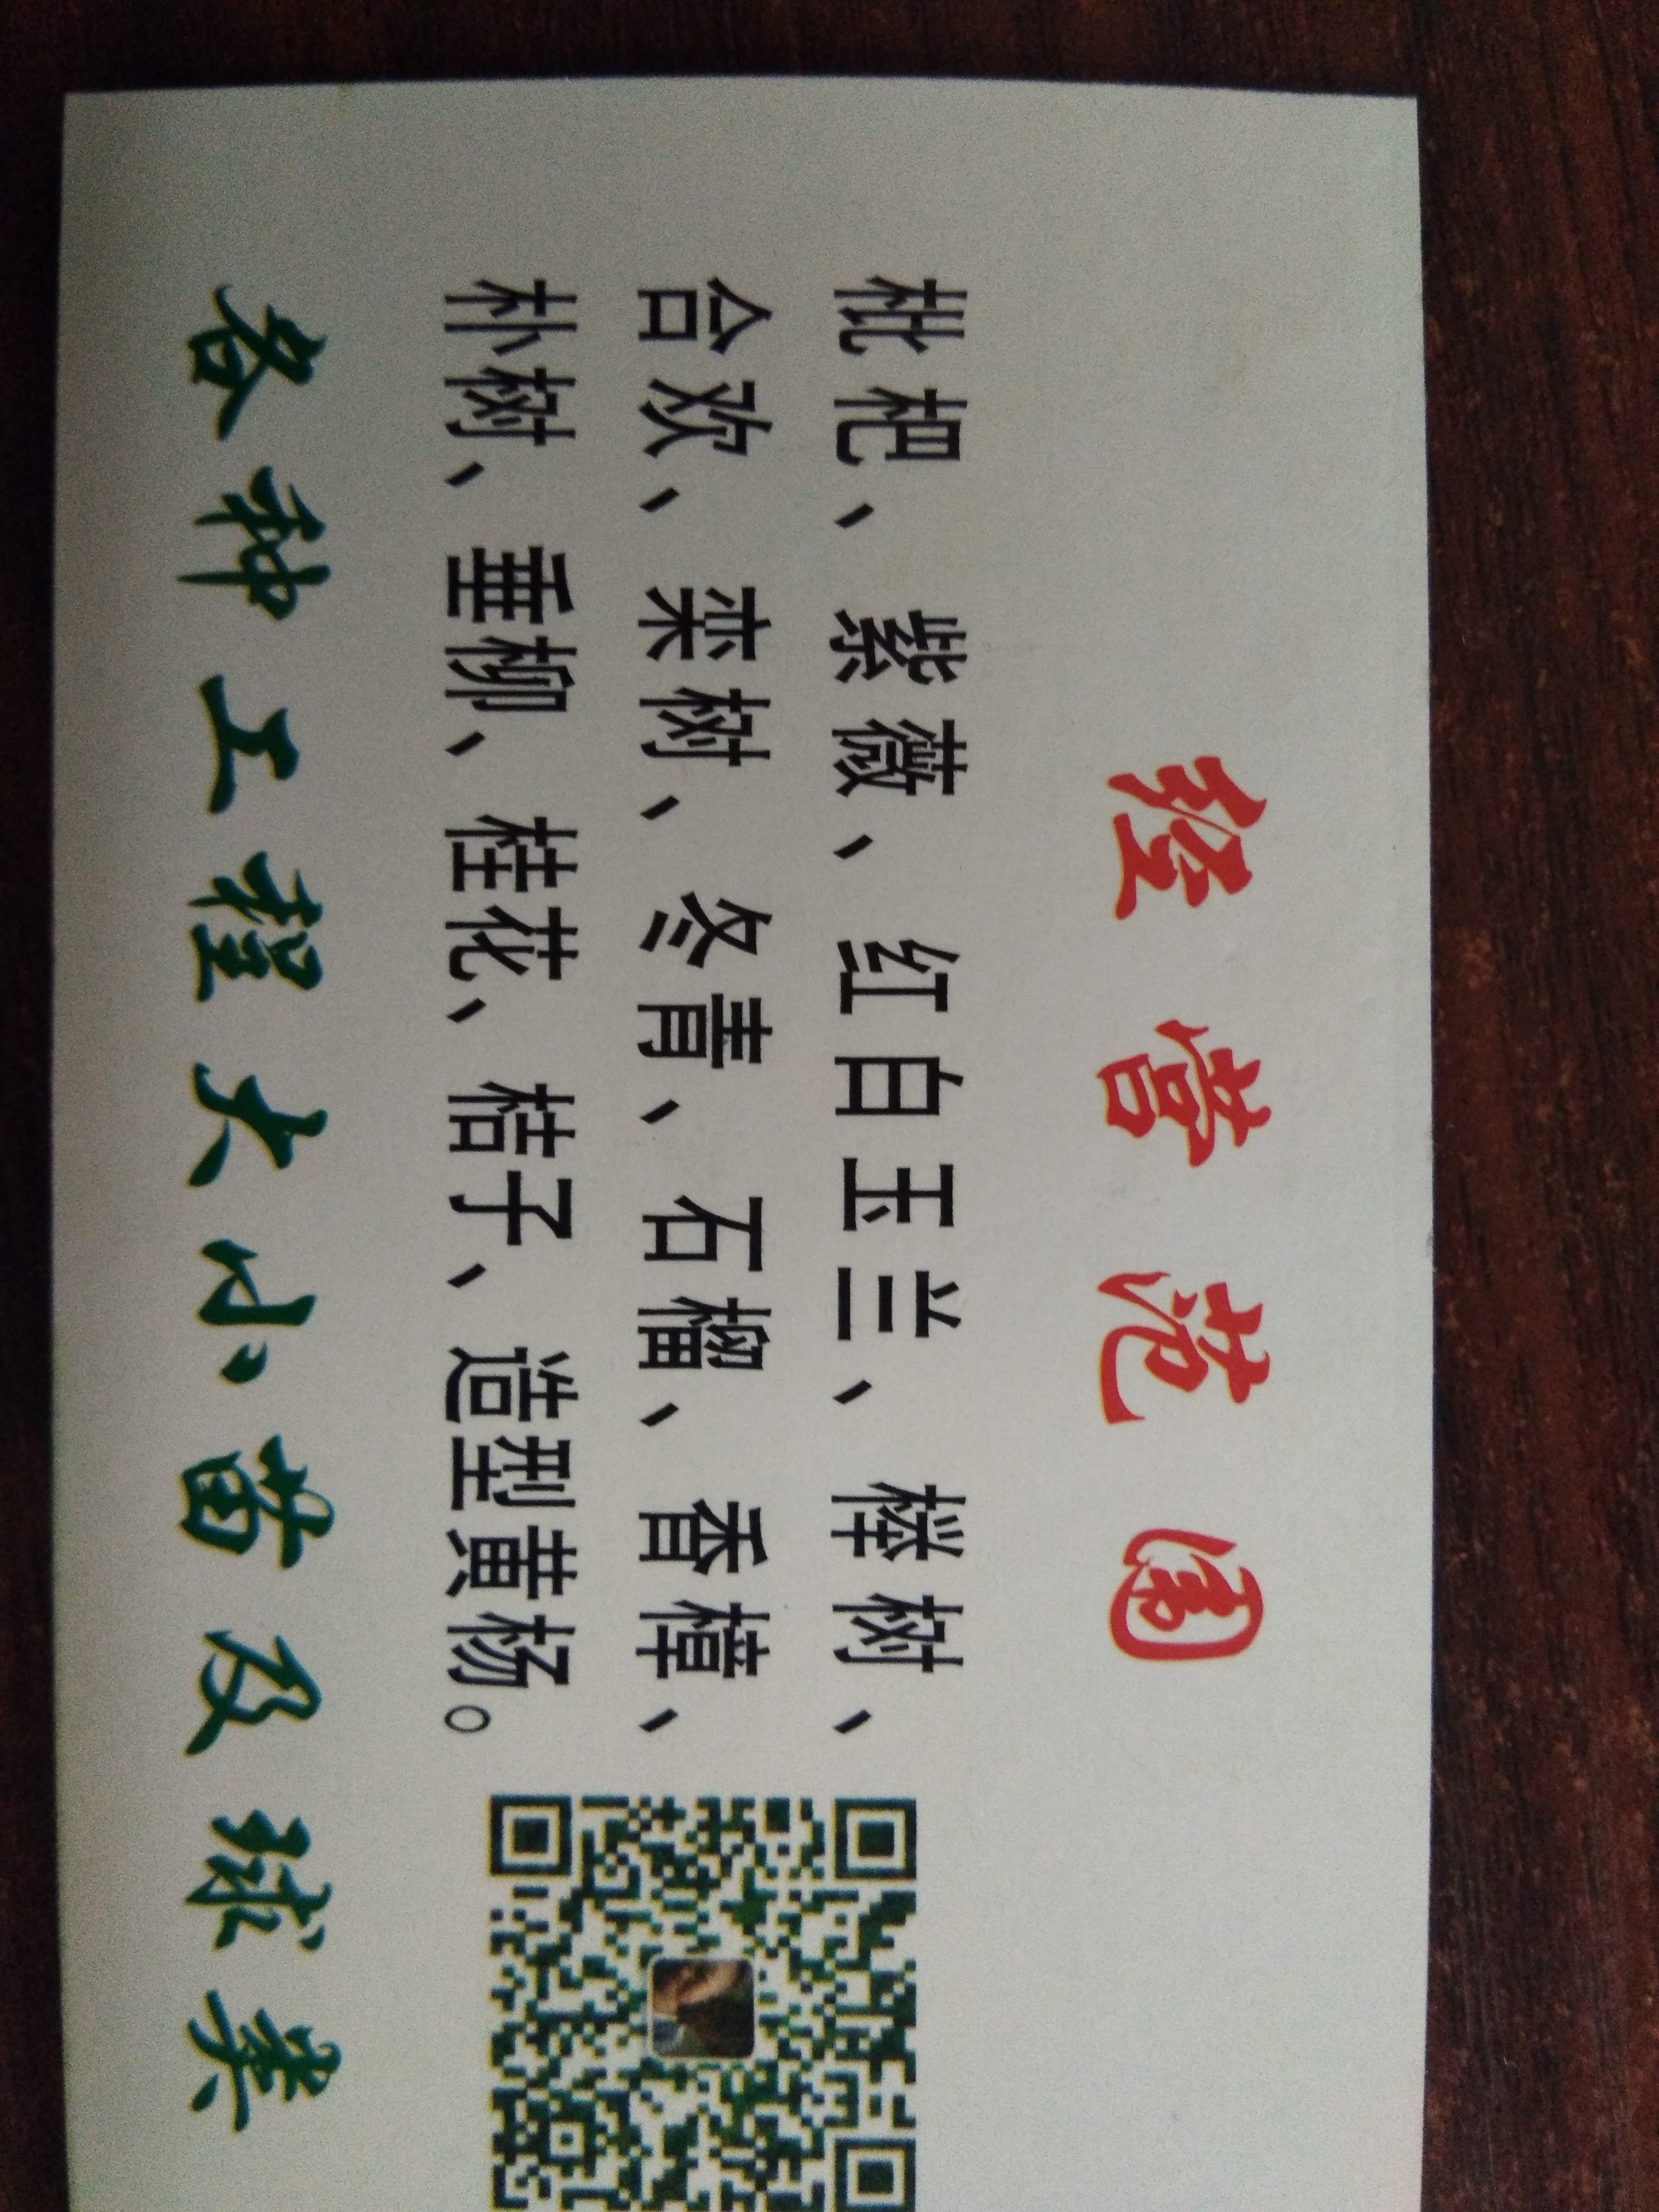 经营范围
枇杷、紫薇、红白玉兰、榉树、
合欢、栾树、冬青、石榴、香樟、
朴树、垂柳、桂花、桔子、造型黄杨。
各种工程大小苗及球类